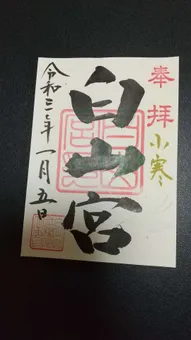 奉拝
小寒
白山宮
令和三年一月五日